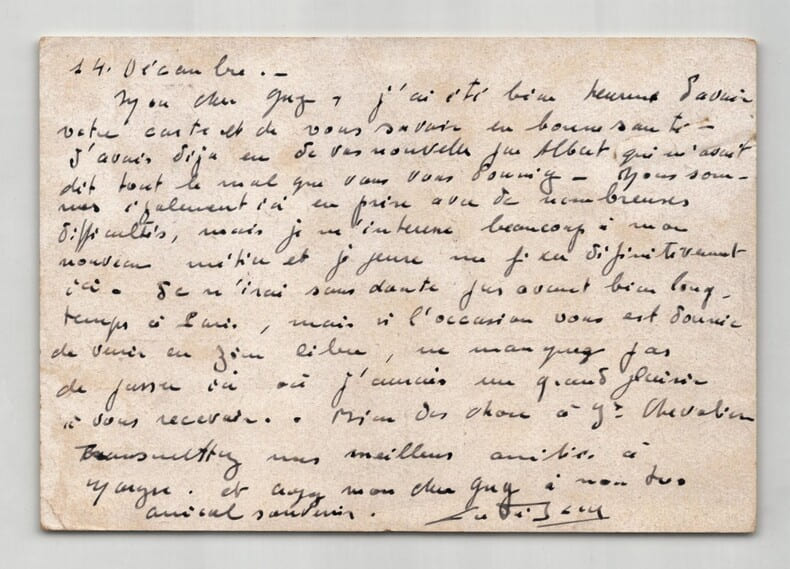 14. Décembre. -
Mon cher Guy, j'ai été bien heureux d'avoir
votre carte et de vous savoir en bonne santé -
J'avais déjà eu de vos nouvelles par Albert qui m'avait
dit tout le mal que vous vous donniez - Nous som-
mes également ici en prise avec de nombreuses
difficultés, mais je m'intéresse beaucoup à mon
nouveau métier et je pense me fixer définitivement
ici. Je n'irai sans doute pas avant bien long-
temps à Paris, mais si l'occasion vous est donnée
de venir en zône libre, ne manquez pas
de passer ici où j'aurais un grand plaisir
à vous recevoir. . Bien des choses à Chevalier
Transmettez mes meilleurs amitiés à
et mon cher Guy à mon
amical souvenir.